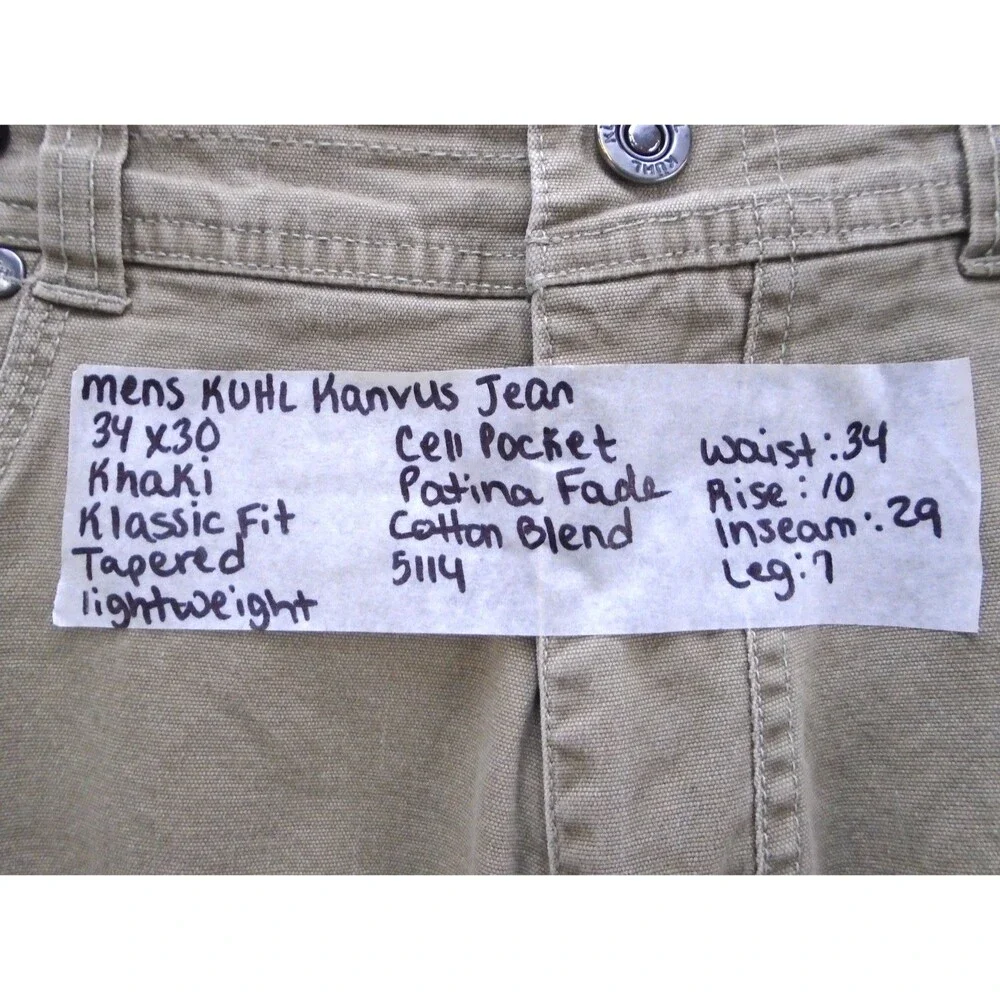 KUHL
mens KUHL Kanvus Jean
34 x30
Khaki
Klassic Fit
Tapered
lightweight
Cell Pocket
Patina Fade
Cotton Blend
5114
Waist: 34
Rise: 10
Inseam: 29
Leg: 7